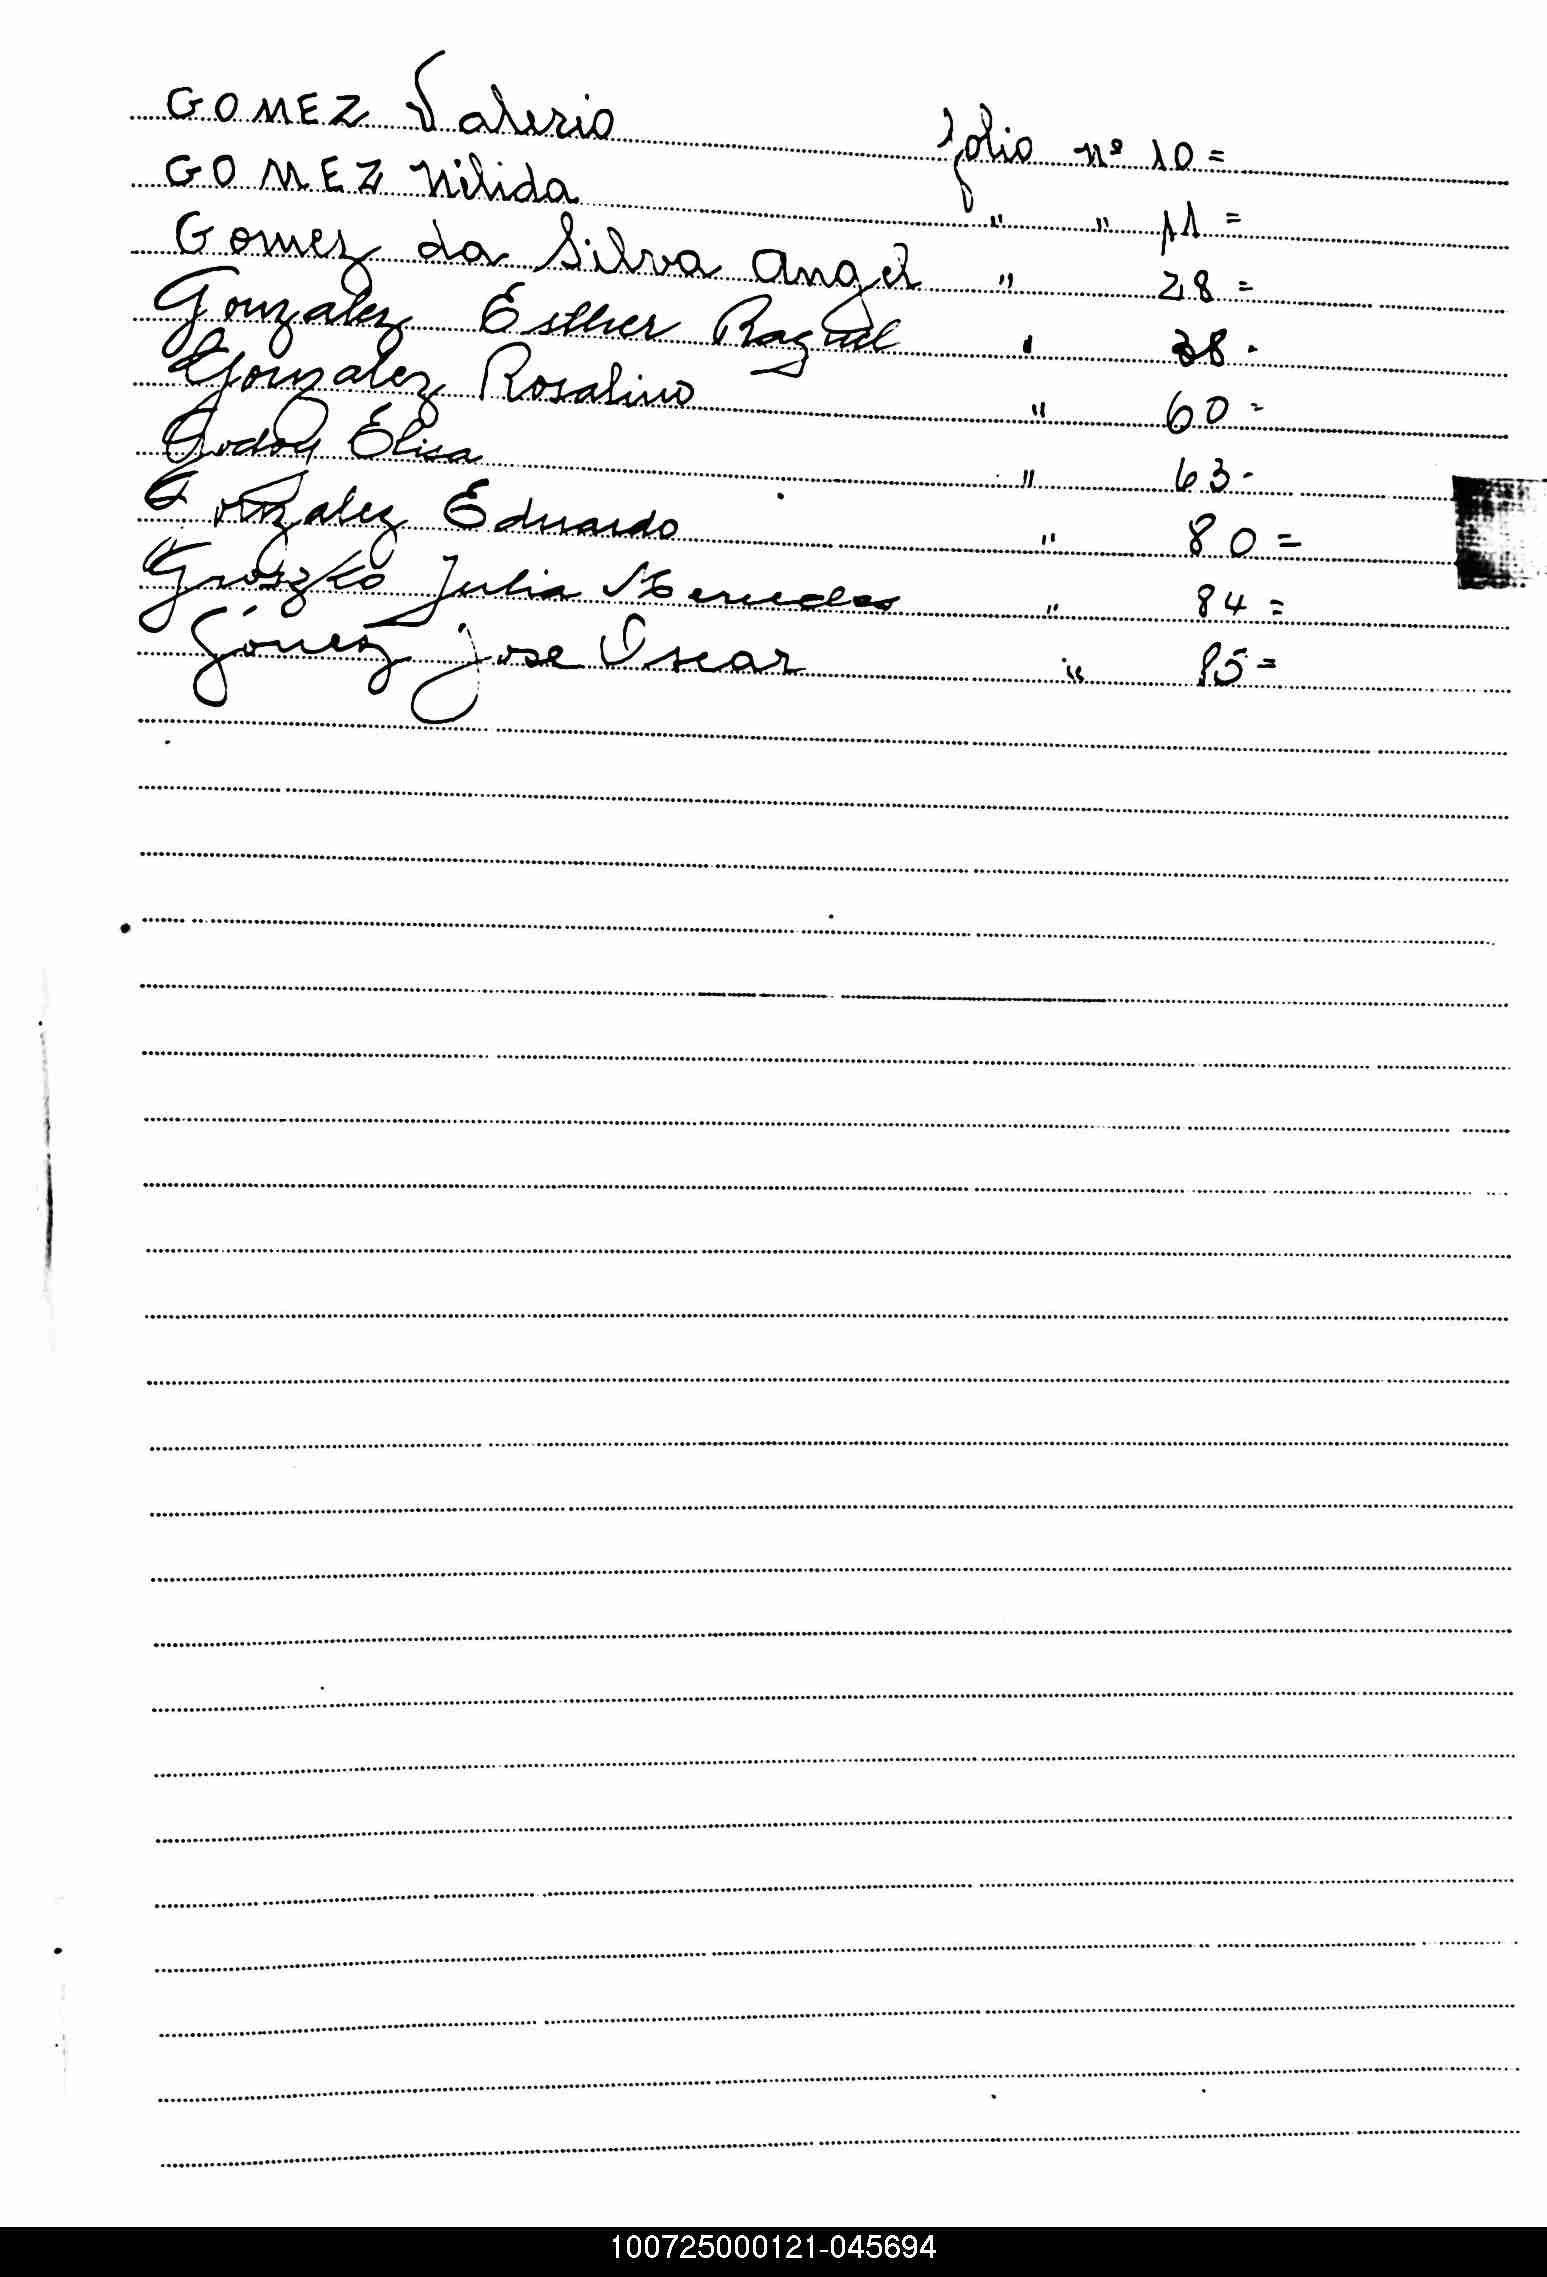 GOMEZ Valerio folio nº 10=
GOMEZ Nélida " " 11=
Gomez da Silva Angel " 28=
Gonzalez Esther Raquel " 38-
Gonzalez Rosalino " 60=
Godoy Elisa " 63-
Gonzalez Eduardo " 80=
Groszko Julia Mercedes " 84=
Gómez Jose Oscar " 85=
100725000121-045694